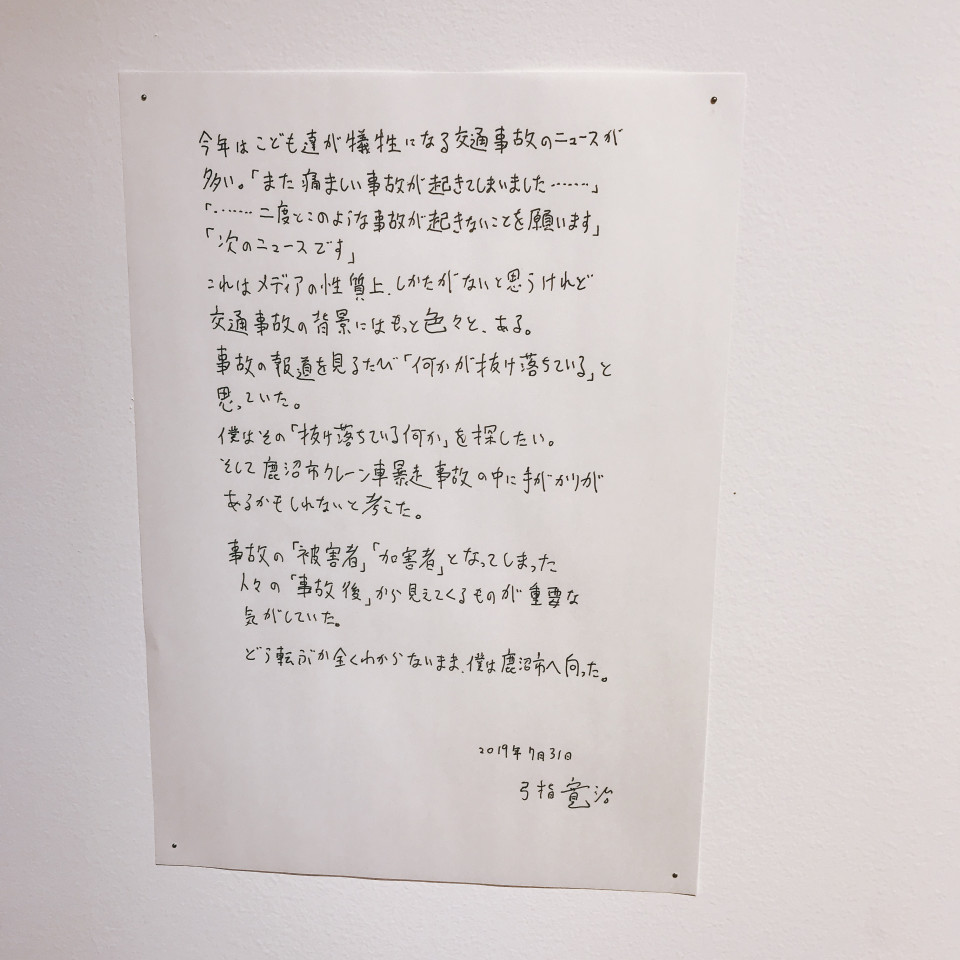 今年はこども達が犠牲になる交通事故のニュースが
多い。「また痛ましい事故が起きてしまいました……」
「……二度とこのような事故が起きないことを願います」
「次のニュースです」
これはメディアの性質上、しかたがないと思うけれど
交通事故の背景にはもっと色々と、ある。
事故の報道を見るたび「何かが抜け落ちている」と
思っていた。
僕はその「抜け落ちている何か」を探したい。
そして鹿沼市クレーン車暴走事故の中に手がかりが
あるかもしれないと考えた。
事故の「被害者」「加害者」となってしまった
人々の「事故後」から見えてくるものが重要な
気がしていた。
どう転ぶか全くわからないまま、僕は鹿沼市へ向った。
2019年7月31日
弓指寛治